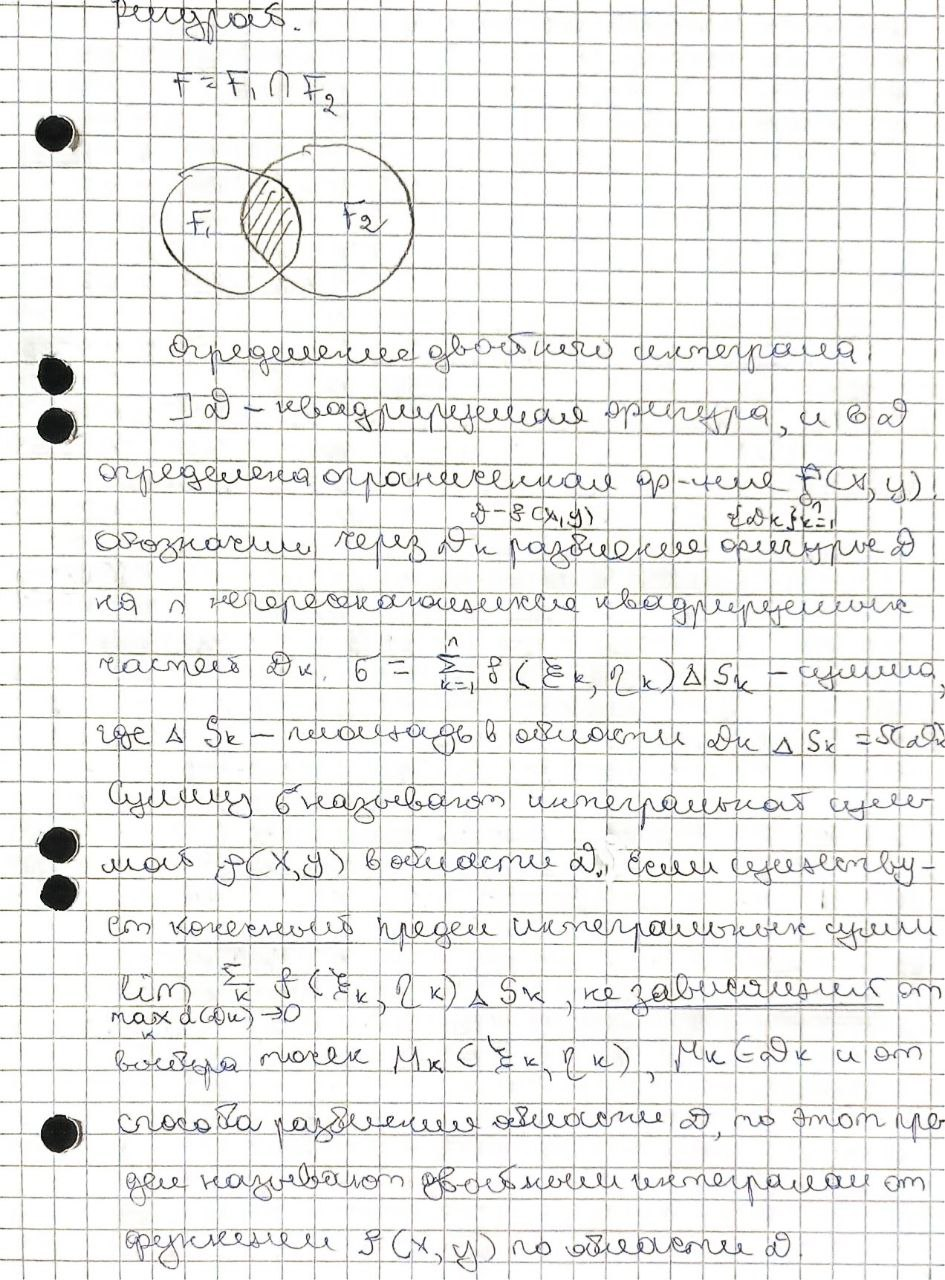 фигурой.
F = F₁ ∩ F₂
F₁ F₂
Определение двойного интеграла.
] D – квадрируемая фигура, и в D
определена ограниченная ф-ция f(x, y).
D – f(x, y) {Dk}ⁿk=1
обозначим через Dk разбиение фигуры D
на n непересекающихся квадрируемых
частей Dk. σ = Σⁿk=1 f(ξk, ηk) Δ Sk – сумма,
где Δ Sk – площадь в области Dk Δ Sk = S(Dk
Сумму σ называют интегральной сум-
мой f(x, y) в области D. Если существу-
ет конечный предел интегральных сумм
lim Σk f(ξk, ηk) Δ Sk, не зависящий от
max d(Dk) → 0
k
выбора точек Mk(ξk, ηk), Mk ∈ Dk и от
способа разбиения области D, то этот пре
дел называют двойным интегралом от
функции f(x, y) по области D.